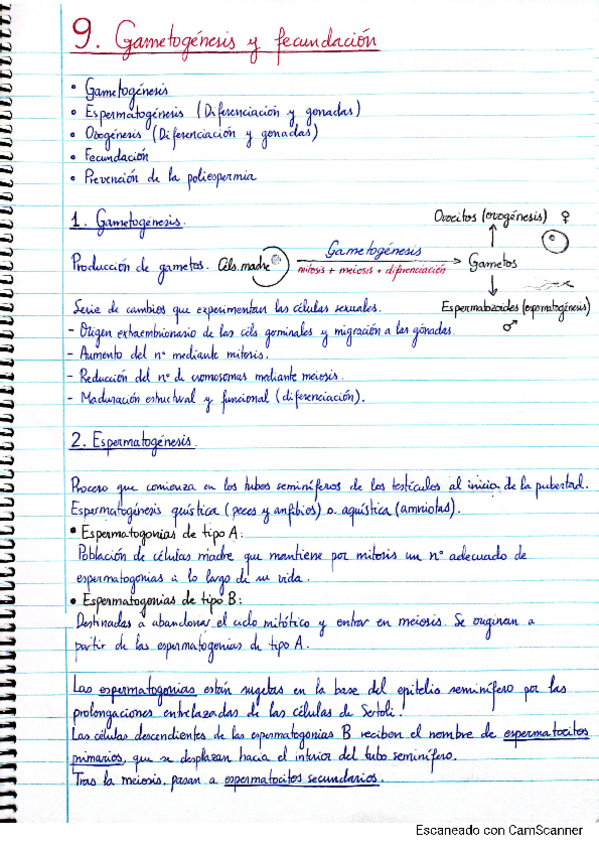 9. Gametogénesis y fecundación
• Gametogénesis
• Espermatogénesis (Diferenciación y gonadas)
• Ovogénesis (Diferenciación y gonadas)
• Fecundación
• Prevención de la poliespermia
1. Gametogénesis.
Ovocitos (ovogénesis) ♀
Producción de gametos. Céls. madre
Gametogénesis
mitosis + meiosis + diferenciación
Gametos
Espermatozoides (espermatogénesis)
♂
Serie de cambios que experimentan las células sexuales.
- Origen extraembrionario de las céls. germinales y migración a las gónadas.
- Aumento del nº mediante mitosis.
- Reducción del nº de cromosomas mediante meiosis.
- Maduración estructural y funcional (diferenciación).
2. Espermatogénesis.
Proceso que comienza en los tubos seminíferos de los testículos al inicio de la pubertad.
Espermatogénesis quística (peces y anfibios) o aquística (amniotas).
• Espermatogonias de tipo A:
Población de células madre que mantiene por mitosis un nº adecuado de
espermatogonias a lo largo de su vida.
• Espermatogonias de tipo B:
Destinadas a abandonar el ciclo mitótico y entrar en meiosis. Se originan a
partir de las espermatogonias de tipo A.
Las espermatogonias están sujetas en la base del epitelio seminífero por las
prolongaciones entrelazadas de las células de Sertoli.
Las células descendientes de las espermatogonias B reciben el nombre de espermatocitos
primarios, que se desplazan hacia el interior del tubo seminífero.
Tras la meiosis, pasan a espermatocitos secundarios.
Escaneado con CamScanner